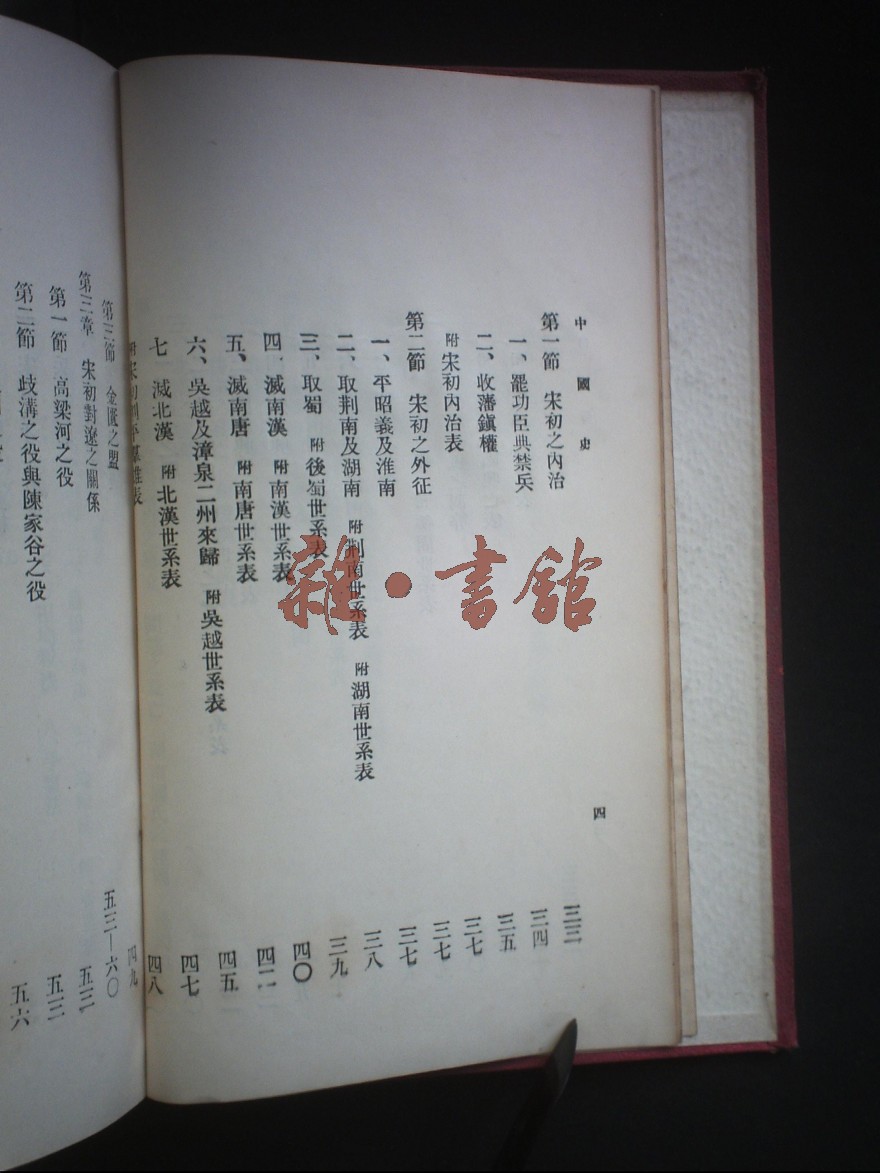 中國史 四
第一節 宋初之內治 三三
一、罷功臣典禁兵 三四
二、收藩鎮權 三五
附宋初內治表 三七
第二節 宋初之外征 三七
一、平昭義及淮南 三七
二、取荆南及湖南 附荆南世系表 附湖南世系表 三八
三、取蜀 附後蜀世系表 三九
四、滅南漢 附南漢世系表 四〇
五、滅南唐 附南唐世系表 四二
六、吳越及漳泉二州來歸 附吳越世系表 四五
七 滅北漢 附北漢世系表 四七
附宋初削平羣雄表 四八
第三節 金匱之盟 四九
第三章 宋初對遼之關係 五三—六〇
第一節 高梁河之役 五三
第二節 歧溝之役與陳家谷之役 五三
五六
雜·書館